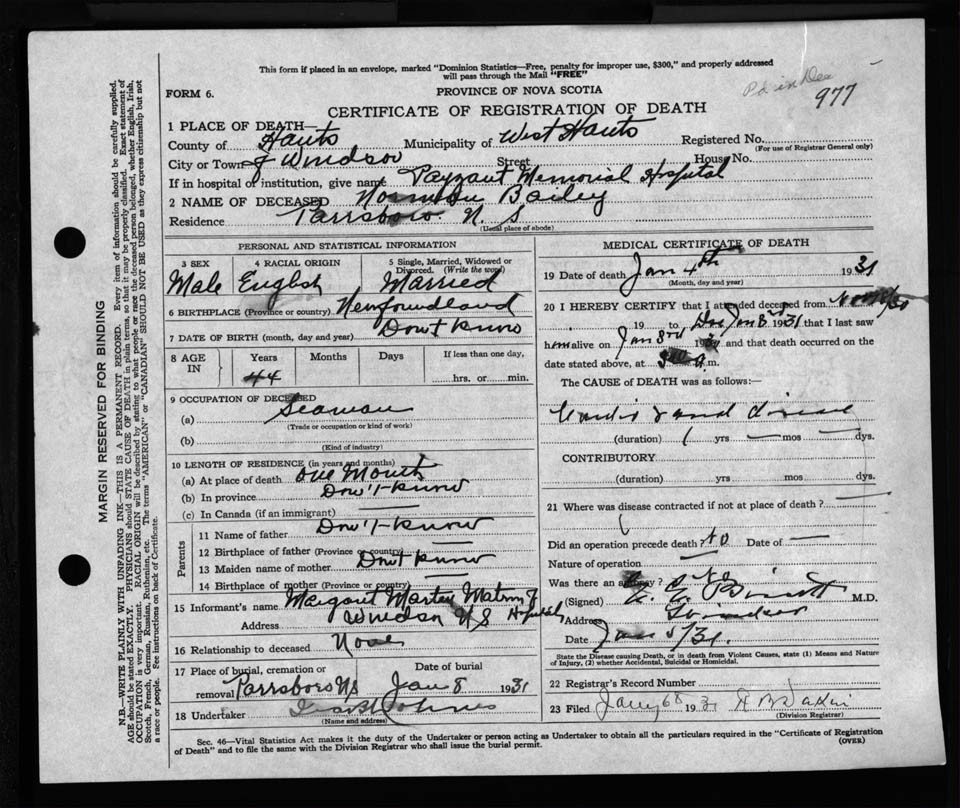 This form if placed in an envelope, marked "Dominion Statistics—Free, penalty for improper use, $300," and properly addressed
will pass through the Mail "FREE"
FORM 6.
PROVINCE OF NOVA SCOTIA
977
CERTIFICATE OF REGISTRATION OF DEATH
1 PLACE OF DEATH—
County of Hants Municipality of West Hants Registered No.
(For use of Registrar General only)
City or Town of Windsor Street House No.
If in hospital of institution, give name Payzant Memorial Hospital
2 NAME OF DECEASED Norman Bailey
Residence Parrsboro N. S
(Usual place of abode)
PERSONAL AND STATISTICAL INFORMATION
3 SEX 4 RACIAL ORIGIN 5 Single, Married, Widowed or
Divorced. (Write the word)
Male English Married
6 BIRTHPLACE (Province or country) Newfoundland
7 DATE OF BIRTH (month, day and year) Don't know
8 AGE IN Years Months Days If less than one day,
44 hrs. or min.
9 OCCUPATION OF DECEASED
(a) Seaman
(Trade or occupation or kind of work)
(b)
(Kind of industry)
10 LENGTH OF RESIDENCE (in years and months)
(a) At place of death one Month
(b) In province Don't know
(c) In Canada (if an immigrant)
Parents
11 Name of father Don't know
12 Birthplace of father (Province or country) —
13 Maiden name of mother Don't know
14 Birthplace of mother (Province or country) —
15 Informant's name Margaret Martin Matron of
Address Windsor N S Hospital
16 Relationship to deceased None
17 Place of burial, cremation or Date of burial
removal Parrsboro NS Jan 8 1931
18 Undertaker
(Name and address)
MEDICAL CERTIFICATE OF DEATH
19 Date of death Jan 4th 1931
(Month, day and year)
20 I HEREBY CERTIFY that I attended deceased from
19 to Jan 3rd 1931 that I last saw
him alive on Jan 3rd 19 and that death occurred on the
date stated above, at m.
The CAUSE of DEATH was as follows:—
(duration) 1 yrs — mos — dys.
CONTRIBUTORY
(duration) yrs mos dys.
21 Where was disease contracted if not at place of death? —
Did an operation precede death? No Date of —
Nature of operation —
Was there an autopsy?
(Signed) M.D.
Address Windsor
Date Jan 5/31.
State the Disease causing Death, or in death from Violent Causes, state (1) Means and Nature
of Injury, (2) whether Accidental, Suicidal or Homicidal.
22 Registrar's Record Number
23 Filed Jany 6 1931
(Division Registrar)
Sec. 46—Vital Statistics Act makes it the duty of the Undertaker or person acting as Undertaker to obtain all the particulars required in the "Certificate of Registration
of Death" and to file the same with the Division Registrar who shall issue the burial permit.
(OVER)
MARGIN RESERVED FOR BINDING
N.B.—WRITE PLAINLY WITH UNFADING INK—THIS IS A PERMANENT RECORD. Every item of information should be carefully supplied.
AGE should be stated EXACTLY. PHYSICIANS should STATE CAUSE OF DEATH in plain terms, so that it may be properly classified. Exact statement of
OCCUPATION is very important. RACIAL ORIGIN will be described by stating to what people or race the deceased person belonged, whether English, Irish,
Scotch, French, German, Russian, Ruthenian, etc. The terms "AMERICAN" or "CANADIAN" SHOULD NOT BE USED as they express citizenship but not
a race or people. See instructions on back of Certificate.